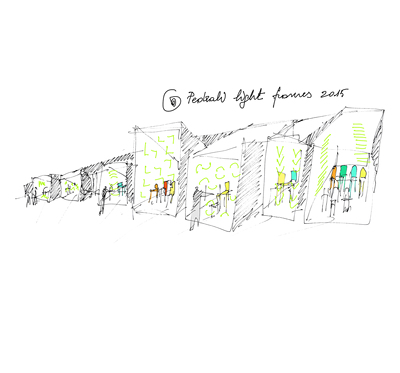 Pedrali light frames 2015